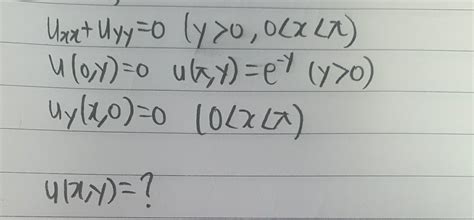 Uxx+Uyy=0 (y>0, 0<x<π)
U(0,y)=0 U(π,y)=e^-y (y>0)
Uy(x,0)=0 (0<x<π)
U(x,y)=?